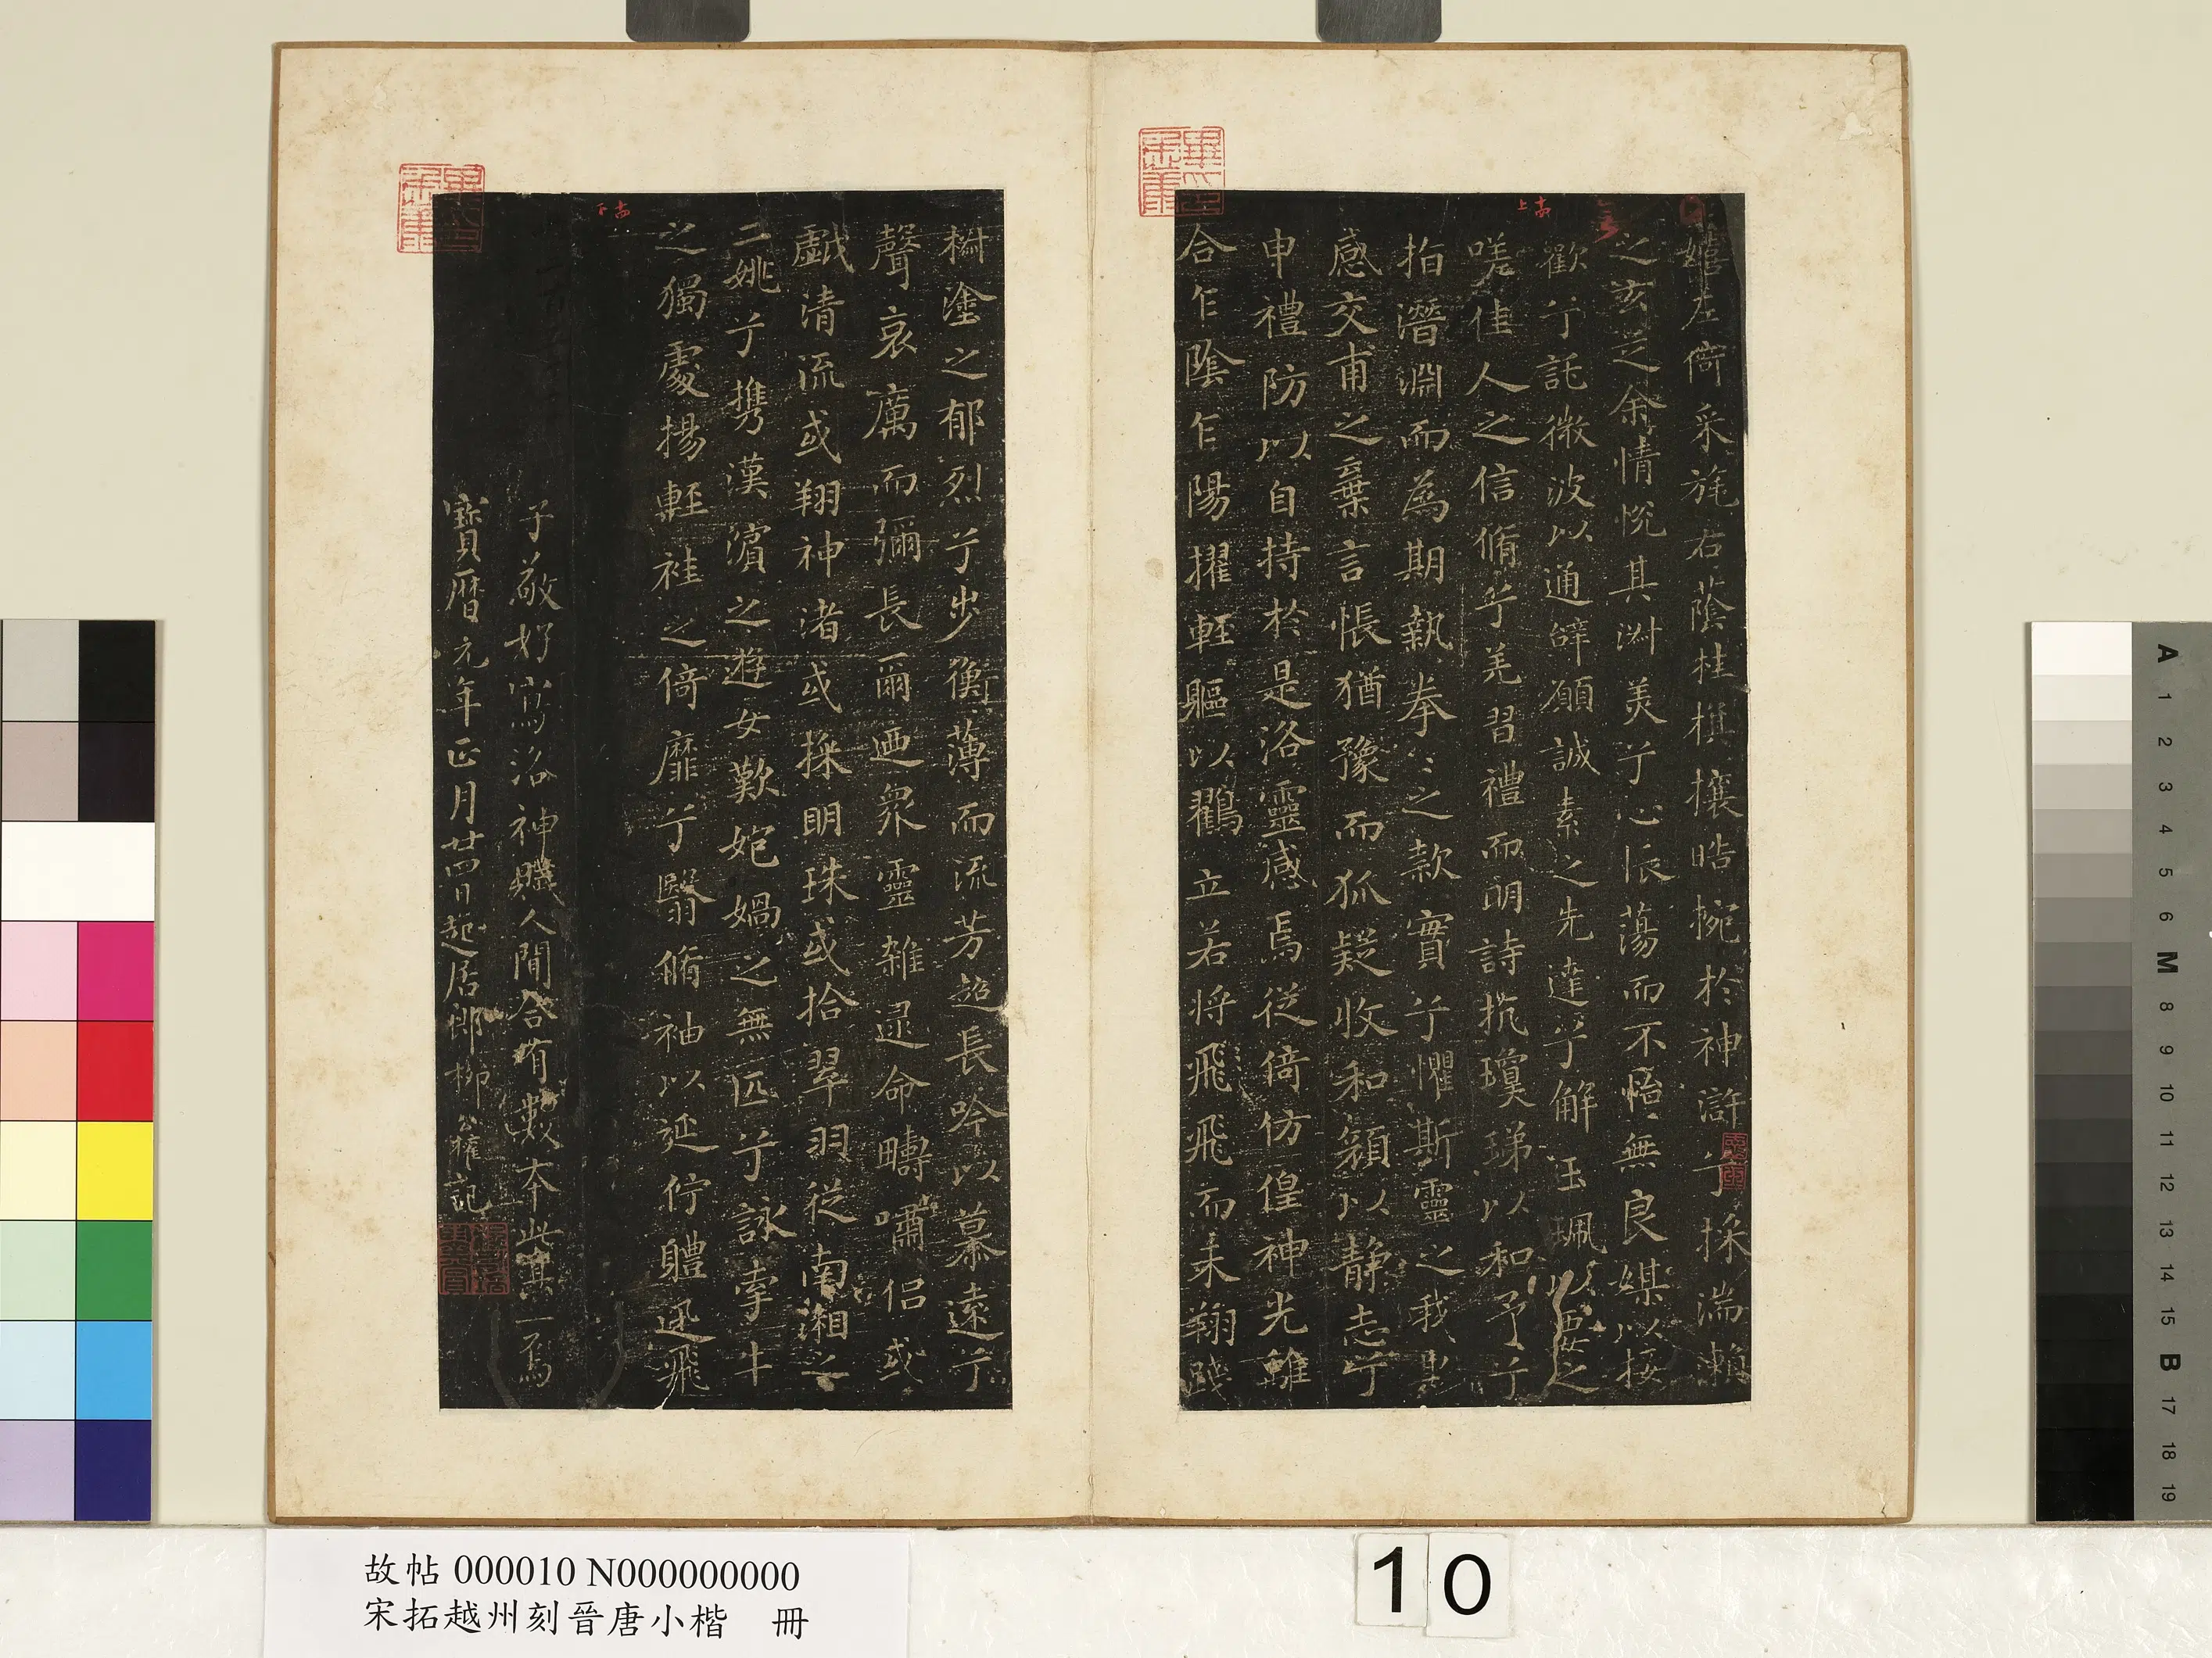 嬉左倚采旄右蔭桂旗攘皓捥於神滸兮採湍瀨
之玄芝余情悅其淑美兮心振蕩而不怡無良媒以接
歡兮託微波以通辭願誠素之先達兮解玉珮以要之
嗟佳人之信脩兮羌習禮而明詩抗瓊珶以和予兮
指潛淵而為期執拳〻之款實兮懼斯靈之我欺
感交甫之棄言悵猶豫而狐疑收和顏以靜志兮
申禮防以自持於是洛靈感焉徙倚仿偟神光離
合乍陰乍陽擢輕軀以鸖立若将飛飛而未翔踐
椒塗之郁烈兮步蘅薄而流芳超長吟以慕遠兮
聲哀厲而彌長爾迺衆靈雜遝命疇嘯侶或
戯清流或翔神渚或採明珠或拾翠羽從南湘之
二姚兮攜漢濱之遊女歎匏媧之無匹兮詠牽牛
之獨處揚輕袿之倚靡兮翳脩袖以延佇體迅飛
子敬好寫洛神賦人間合有數本此其一焉
寳曆元年正月廿四日起居郎柳公權記
十三上
十三下
A 1 2 3 4 5 6 M 8 9 10 11 12 13 14 15 B 17 18 19
故帖 000010 N000000000
宋拓越州刻晉唐小楷 冊
10